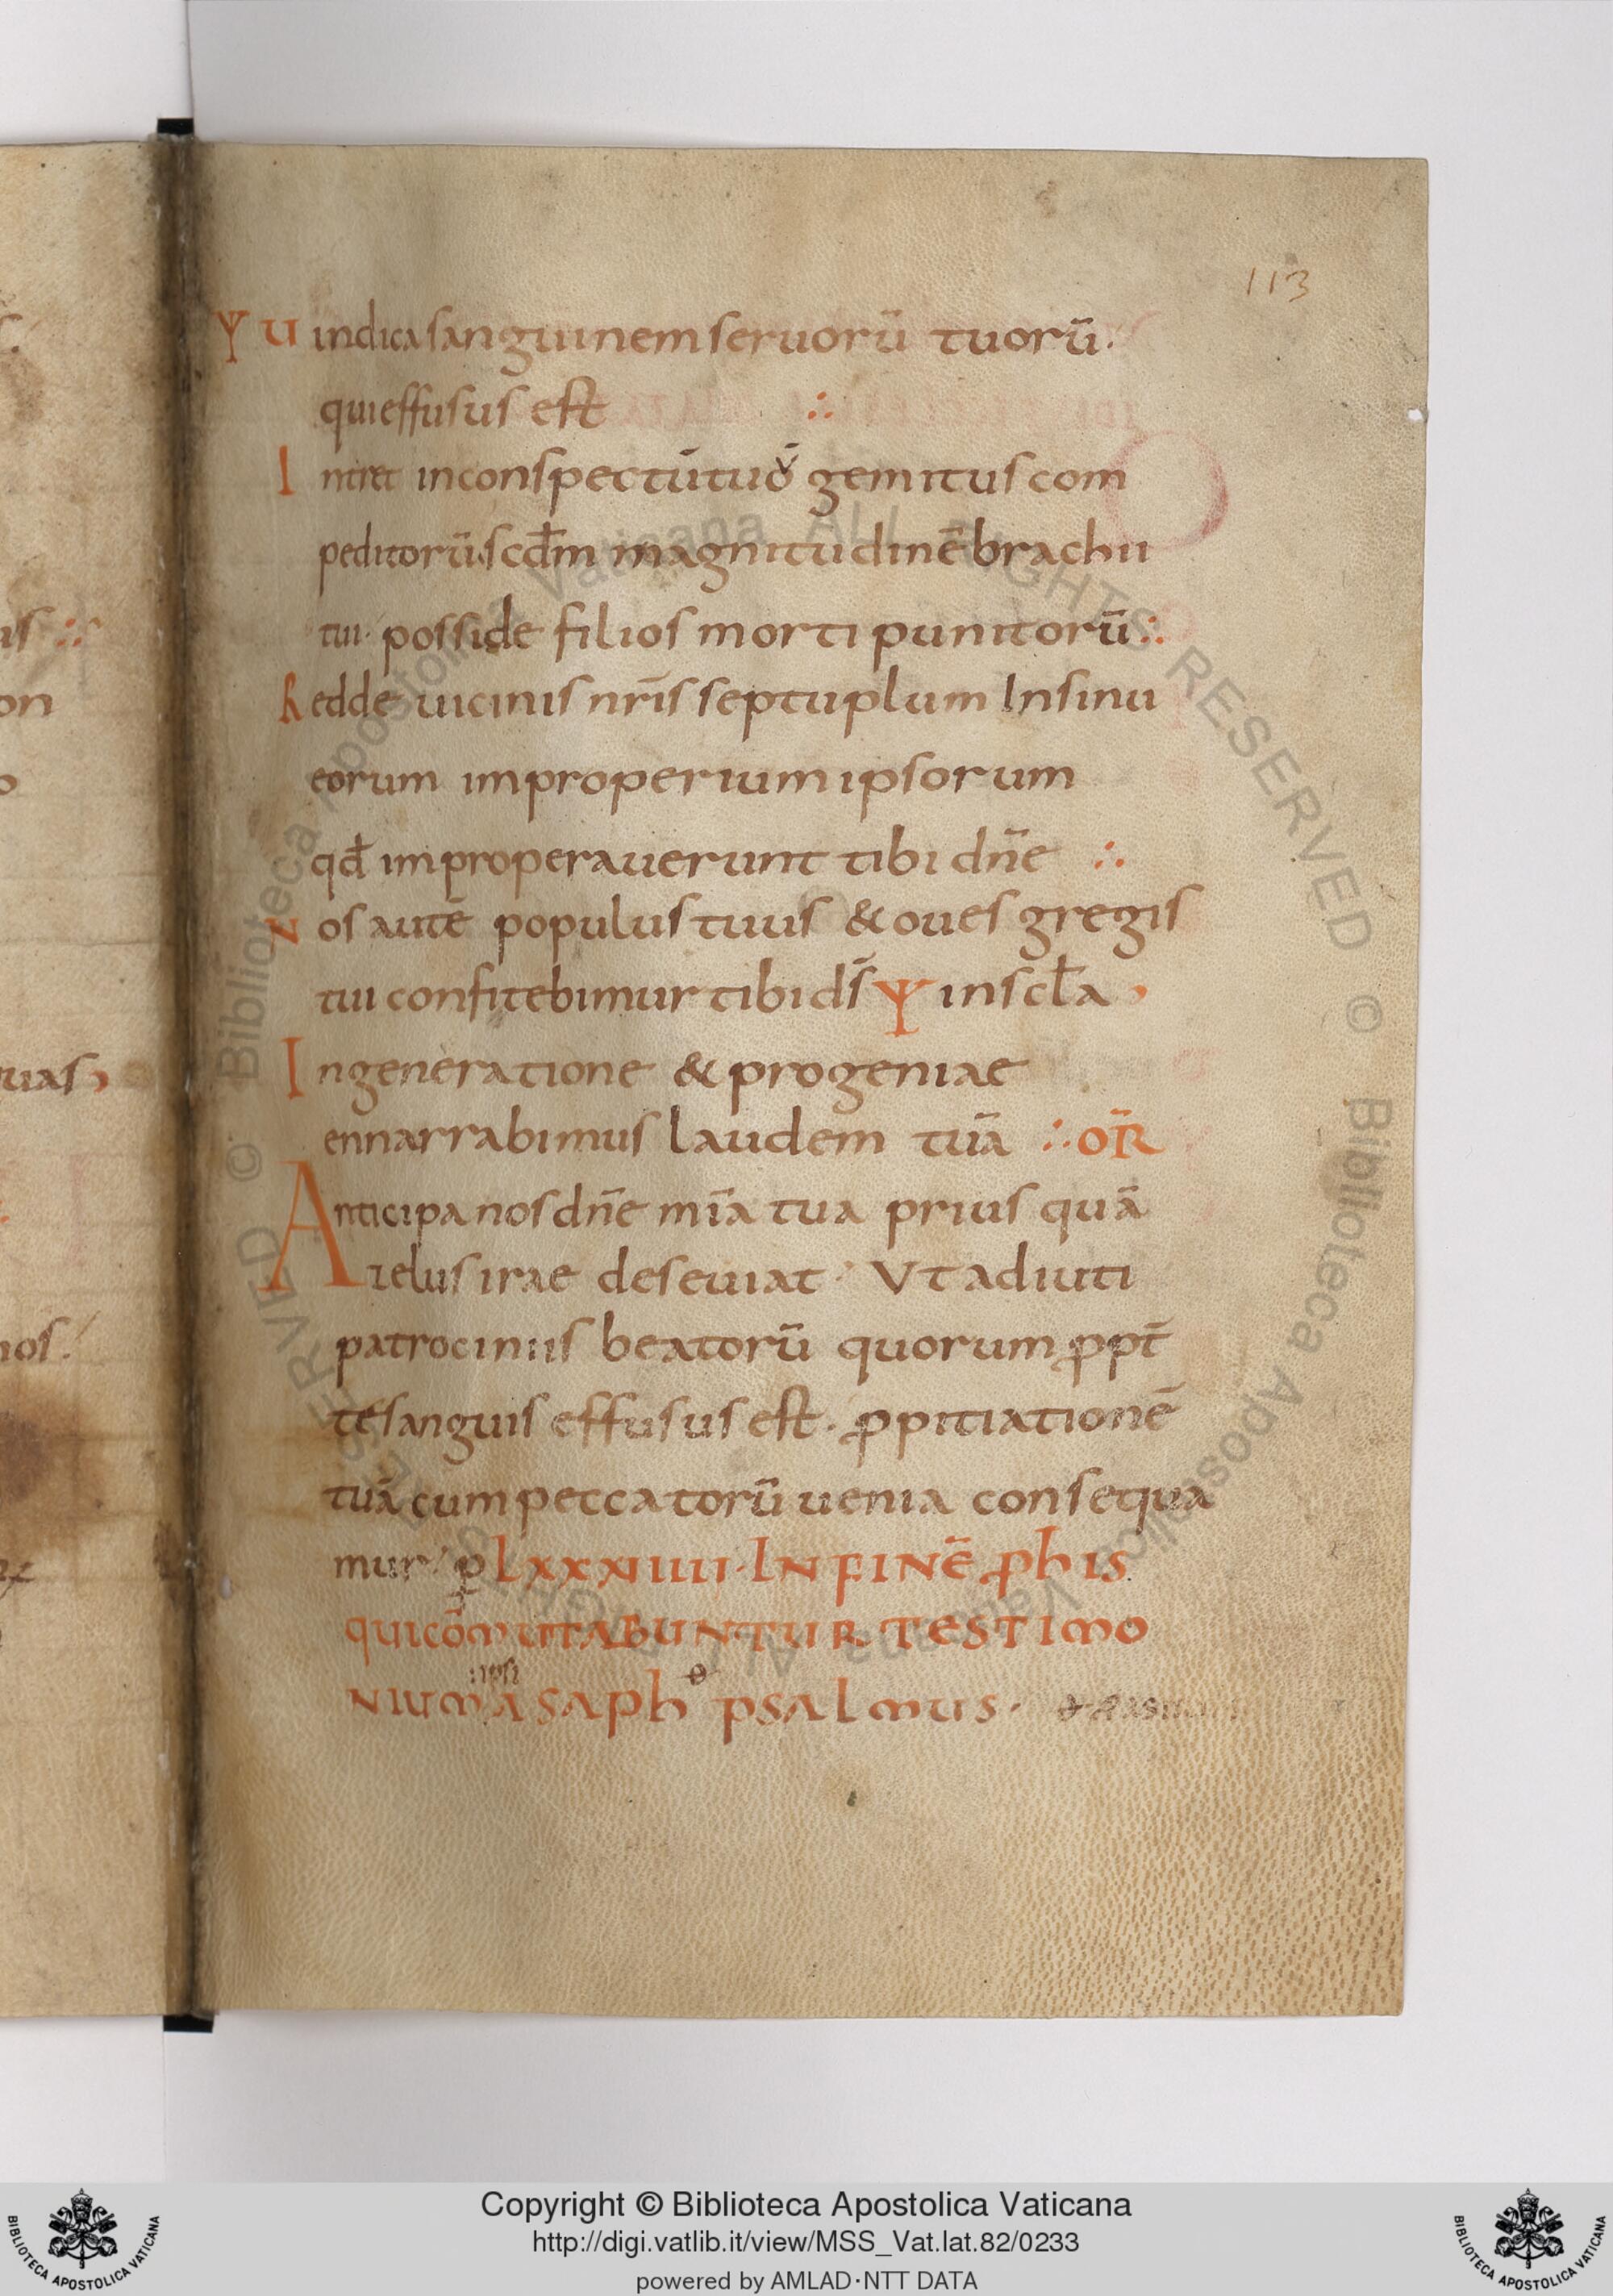 113
Ψ Uindica sanguinem seruorū tuorū.
qui effusus est ∴
Intret in conspectū tuo gemitus com
peditorū. scdm̄ magnitudinē brachii
tui. posside filios morti punitorū ∴
Redde uicinis nrīs septuplum In sinu
eorum improperium ipsorum
qđ improperauerunt tibi dnē ∴
Nos autē populus tuus & oues gregis
tui confitebimur tibi dś Ψ in scła
In generatione & progeniae
ennarrabimus laudem tuā ∴ OR̄
Anticipa nos dnē mīa tua prius quā
zelus irae deseuiat. Ut adiuti
patrociniis beatorū quorum ꝓpt̄
te sanguis effusus est. ꝓpitiationē
tuā cum peccatorū uenia consequa
mur. p LXXXIIII. IN FINĒ ꝓ hIS
QUI COMUTABUNTUR TESTIMO
ipsi
NIUM ASAPh PSALMUS.
Copyright © Biblioteca Apostolica Vaticana
http://digi.vatlib.it/view/MSS_Vat.lat.82/0233
powered by AMLAD·NTT DATA
BIBLIOTECA APOSTOLICA VATICANA
BIBLIOTECA APOSTOLICA VATICANA
© Biblioteca Apostolica Vaticana ALL RIGHTS RESERVED © Biblioteca Apostolica Vaticana ALL RIGHTS RESERVED